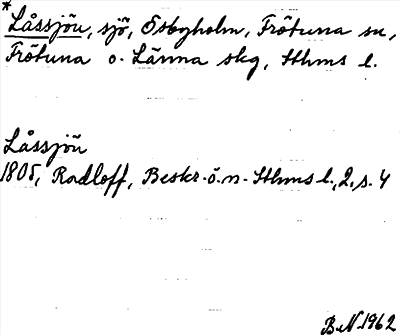 * Låssjön, sjö, Ösbyholm, Frötuna sn,
Frötuna o. Länna skg, Sthms l.
Låssjön
1805, Radloff, Beskr. ö. n. Sthms l., 2, s. 4
B.N. 1962